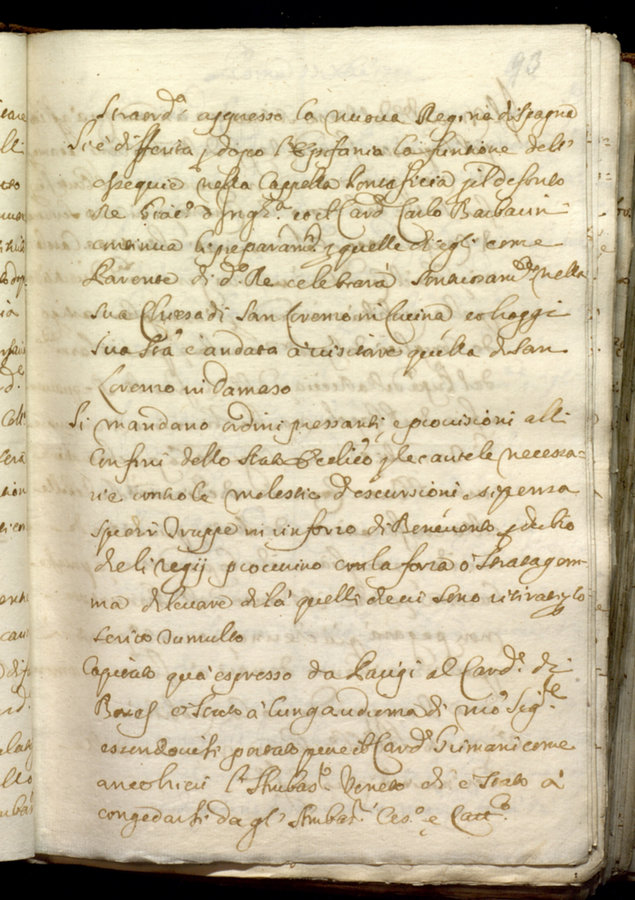 93
Straord.ª appresso la nuova Regina di Spagna
Si è differita p dopo l'Epifania la funtione dell'
essequie nella Cappella Pontificia p il defonto
Re Giac.º d'Ingh.ª et il Card Carlo Barbarini
continua li preparam.ti p quelle ch'egli come
Parente di d.º Re celebrarà sontuosam.te nella
sua Chiesa di San Lorenzo in Lucina et hoggi
sua Stà è andata à visitare quella di San
Lorenzo in Damaso
Si mandano ordini pressanti, e provisioni alli
Confini dello Stato Ecclico p le cautele necessa=
rie contro le molestie d'escursioni e si pensa
spedir Truppe in rinforzo di Benevento p dubio
che li regij procurino con la forza ò stratagem=
ma di levare di là quelli che vi sono ritirati p lo
serito tumulto
Capitato quà espresso da Parigi al Card.e di
è stato à lunga udienza di nro Sig.re
essendovisi portato pure il Card.e Grimani come
anco hieri l'Ambas.r Veneto che è stato à
congedarsi da gl'Ambas.ri Ces.º e Catt.º